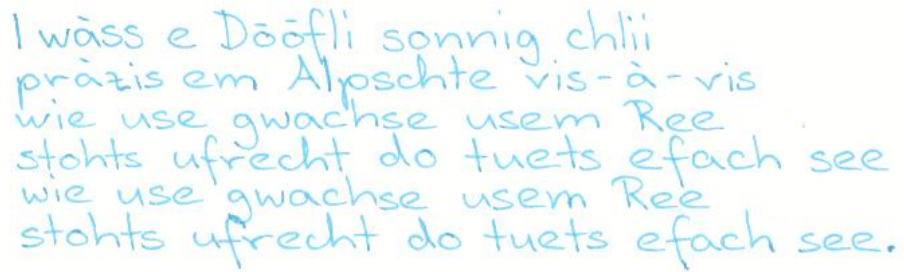 I wäss e Dööfli sonnig chlii
präzis em Alpschte vis-à-vis
wie use gwachse usem Ree
stohts ufrecht do tuets efach see
wie use gwachse usem Ree
stohts ufrecht do tuets efach see.